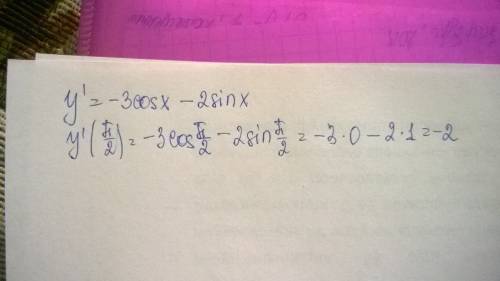 y' = -3cosx - 2sinx
y'(π/2) = -3cos π/2 - 2sin π/2 = -3·0 - 2·1 = -2